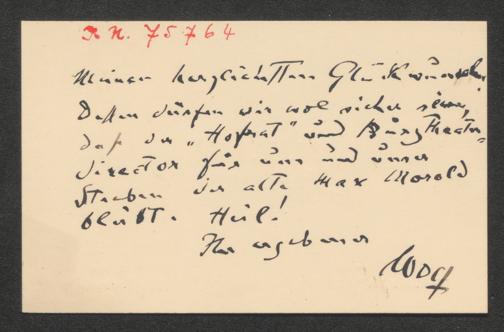 I. N. 75764
Meinen herzlichsten Glückwunsch.
Dessen dürfen wir wol sicher sein,
daß der „Hofrat" und Burgtheater-
director für uns und unser
Streben der alte Max Morold
bleibt. Heil!
Ihr ergebener